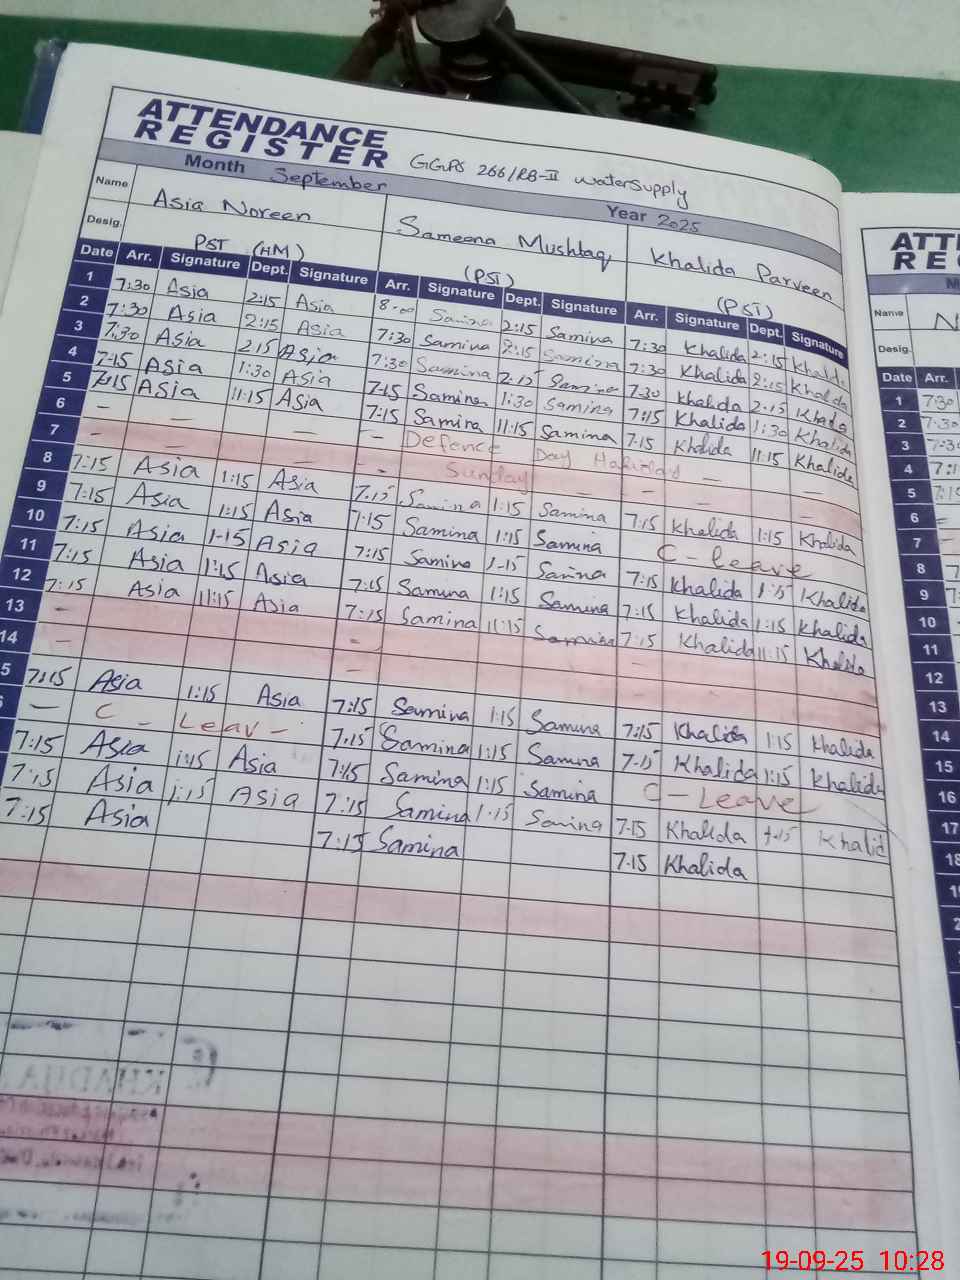 ATTENDANCE
REGISTER GGPS 266/RB-II watersupply
Month September Year 2025
Name Asia Noreen Sameena Mushtaq Khalida Parveen
Desig. PST (HM) (PST) (PST)
Date Arr. Signature Dept. Signature Arr. Signature Dept. Signature Arr. Signature Dept. Signature
1 7:30 Asia 2:15 Asia 8:00 Samina 2:15 Samina 7:30 Khalida 2:15 Khalida
2 7:30 Asia 2:15 Asia 7:30 Samina 2:15 Samina 7:30 Khalida 2:15 Khalida
3 7:30 Asia 2:15 Asia 7:30 Samina 2:15 Samina 7:30 Khalida 2:15 Khalida
4 7:15 Asia 1:30 Asia 7:15 Samina 1:30 Samina 7:15 Khalida 1:30 Khalida
5 7:15 Asia 11:15 Asia 7:15 Samina 11:15 Samina 7:15 Khalida 11:15 Khalida
6 - - - - - Defence Day Holiday - -
7 - - - - - Sunday - - - - -
8 7:15 Asia 1:15 Asia 7:15 Samina 1:15 Samina 7:15 Khalida 1:15 Khalida
9 7:15 Asia 1:15 Asia 7:15 Samina 1:15 Samina C-leave
10 7:15 Asia 1-15 Asia 7:15 Samina 1-15 Samina 7:15 Khalida 1:15 Khalida
11 7:15 Asia 1:15 Asia 7:15 Samina 1:15 Samina 7:15 Khalida 1:15 Khalida
12 7:15 Asia 11:15 Asia 7:15 Samina 11:15 Samina 7:15 Khalida 11:15 Khalida
13 - - -
14 - -
5 7:15 Asia 1:15 Asia 7:15 Samina 1:15 Samina 7:15 Khalida 1:15 Khalida
- C - Leav - 7:15 Samina 1:15 Samina 7:15 Khalida 1:15 Khalida
7:15 Asia 1:15 Asia 7:15 Samina 1:15 Samina C-Leave
7:15 Asia 1:15 Asia 7:15 Samina 1:15 Samina 7:15 Khalida 1:15 Khalid
7:15 Asia 7:15 Samina 7:15 Khalida
ATT
RE
Name N
Desig.
Date Arr.
1 7:30
2 7:30
3
4
5
6
7
8
9
10
11
12
13
14
15
16
17
18
19-09-25 10:28